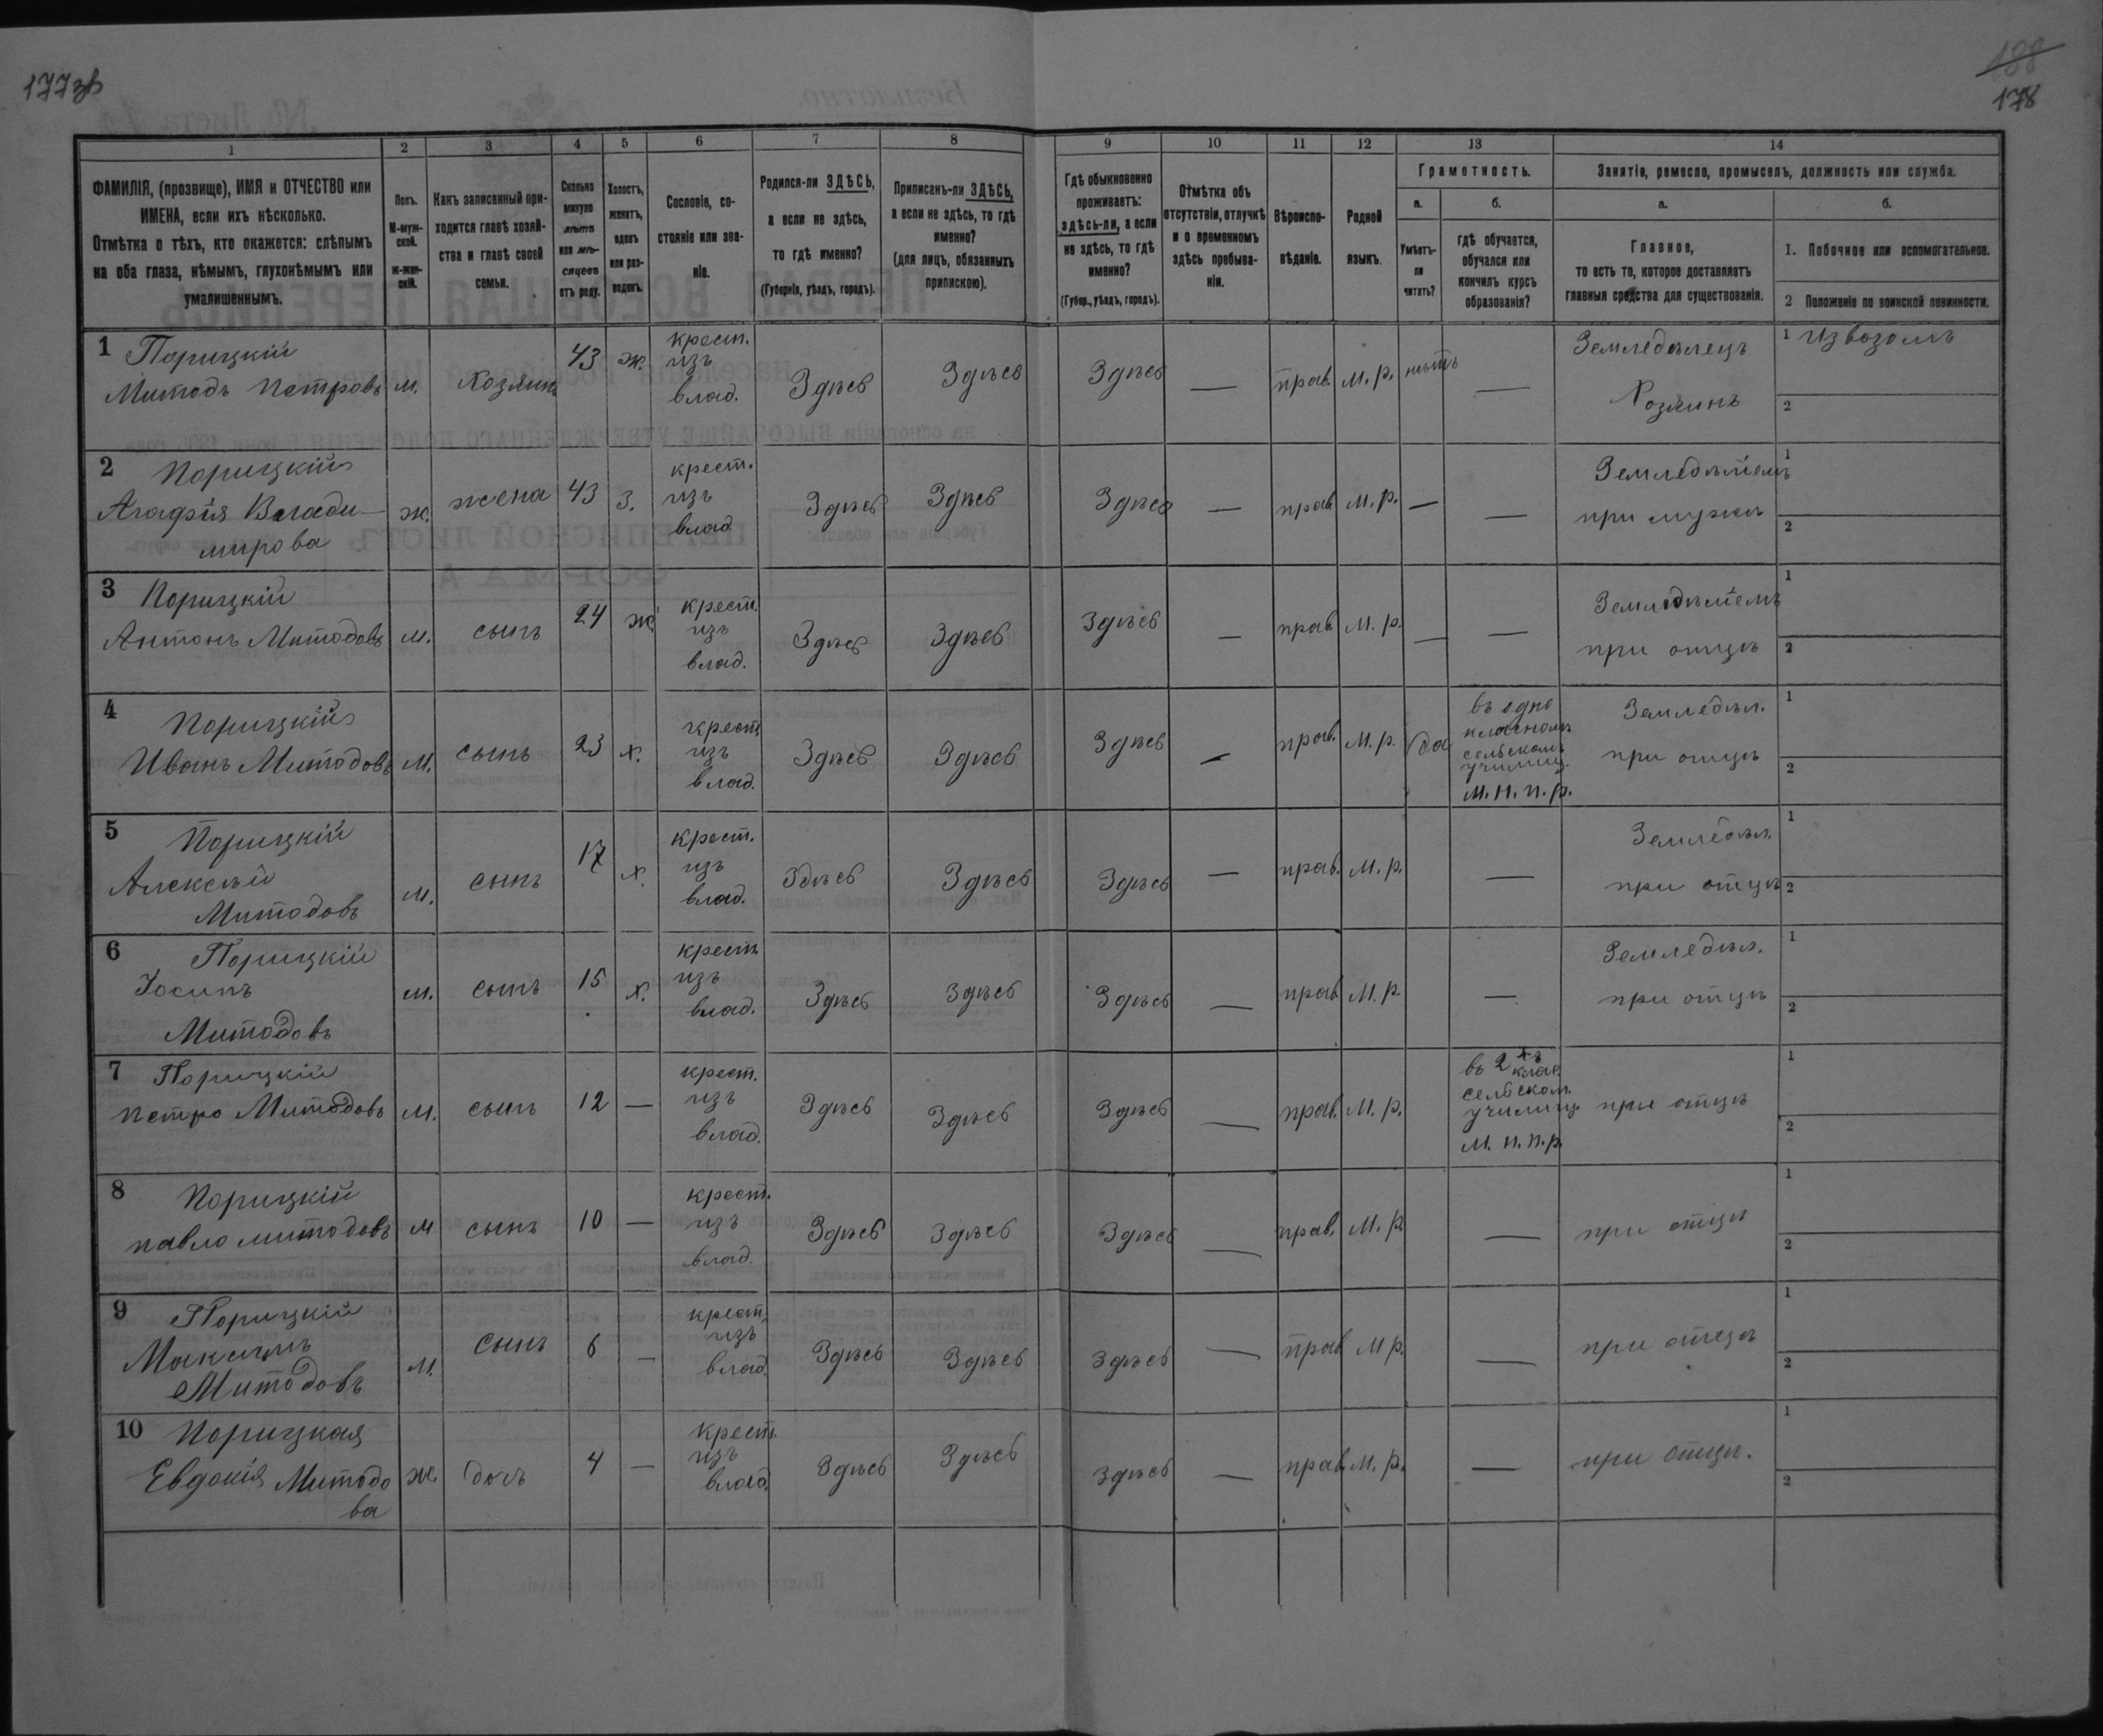 177зв
138
178
1
2
3
4
5
6
7
8
9
10
11
12
13
14
ФАМИЛІЯ, (прозвище), ИМЯ и ОТЧЕСТВО или
ИМЕНА, если ихъ нѣсколько.
Отмѣтка о тѣхъ, кто окажется: слѣпымъ
на оба глаза, нѣмымъ, глухонѣмымъ или
умалишеннымъ.
Полъ.
М-муж-
ской.
ж-жен-
скій.
Какъ записанный при-
ходится главѣ хозяй-
ства и главѣ своей
семьи.
Сколько
минуло
лѣтъ
или мѣ-
сяцевъ
отъ роду.
Холостъ,
женатъ,
вдовъ
или раз-
веденъ.
Сословіе, со-
стояніе или зва-
ніе.
Родился-ли ЗДѢСЬ,
а если не здѣсь,
то гдѣ именно?
(Губернія, уѣздъ, городъ).
Приписанъ-ли ЗДѢСЬ,
а если не здѣсь, то гдѣ
именно?
(для лицъ, обязанныхъ
припискою).
Гдѣ обыкновенно
проживаетъ:
здѣсь-ли, а если
не здѣсь, то гдѣ
именно?
(Губер., уѣздъ, городъ).
Отмѣтка объ
отсутствіи, отлучкѣ
и о временномъ
здѣсь пребыва-
ніи.
Вѣроиспо-
вѣданіе.
Родной
языкъ.
Грамотность.
а.
Умѣетъ-
ли
читать?
б.
гдѣ обучается,
обучался или
кончилъ курсъ
образованія?
Занятіе, ремесло, промыселъ, должность или служба.
а.
Главное,
то есть то, которое доставляетъ
главныя средства для существованія.
б.
1. Побочное или вспомогательное.
2 Положеніе по воинской повинности.
1 Порицкій
Митодъ Петровъ
м.
Хозяинъ
43
ж.
крест.
изъ
влад.
Здѣсь
Здѣсь
Здѣсь
—
прав.
М. р.
нѣтъ
—
Земледѣлецъ
Хозяинъ
1 Извозомъ
2
2 Порицкій
Агафія Влади-
мирова
ж.
жена
43
з.
крест.
изъ
влад.
Здѣсь
Здѣсь
Здѣсь
—
прав
М. р.
—
—
Земледѣліемъ
при мужѣ
1
2
3 Порицкій
Антонъ Митодовъ
м.
сынъ
24
ж.
крест.
изъ
влад.
Здѣсь
Здѣсь
Здѣсь
—
прав.
М. р.
—
—
Земледѣліемъ
при отцѣ
1
2
4 Порицкій
Иванъ Митодовъ
М.
сынъ
23
х.
крест.
изъ
влад.
Здѣсь
Здѣсь
Здѣсь
—
прав.
М. р.
да
въ одно
класномъ
сельскомъ
училищ.
М. Н. П. р.
Земледѣл.
при отцѣ
1
2
5 Порицкій
Алексѣй
Митодовъ
М.
сынъ
17
х.
крест.
изъ
влад.
Здѣсь
Здѣсь
Здѣсь
—
прав.
М. р.
—
Земледѣл.
при отцѣ
1
2
6 Порицкій
Іосипъ
Митодовъ
м.
сынъ
15
х.
крест.
изъ
влад.
Здѣсь
Здѣсь
Здѣсь
—
прав
М. р.
—
Земледѣл.
при отцѣ
1
2
7 Порицкій
Петро Митодовъ
М.
сынъ
12
—
крест.
изъ
влад.
Здѣсь
Здѣсь
Здѣсь
—
прав.
М. р.
въ 2 хъ клас.
сельском.
училищ.
М. Н. П. р.
при отцѣ
1
2
8 Порицкій
павло митодовъ
М
сынъ
10
—
крест.
изъ
влад.
Здѣсь
Здѣсь
Здѣсь
—
прав.
М. р.
—
при отцѣ
1
2
9 Порицкій
Максимъ
Митодовъ
М.
сынъ
6
—
крест.
изъ
влад.
Здѣсь
Здѣсь
Здѣсь
—
прав
М р.
—
при отцѣ
1
2
10 Порицкая
Евдокія Митодо
ва
ж
дочъ
4
—
Крест.
изъ
влад.
Здѣсь
Здѣсь
Здѣсь
—
прав.
М. р.
—
при отцѣ.
1
2